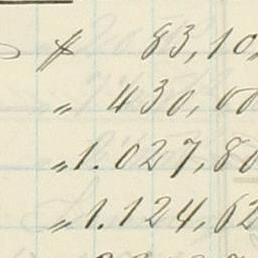 $ 83,10
„ 430,00
„ 1.027,80
„ 1.124,62